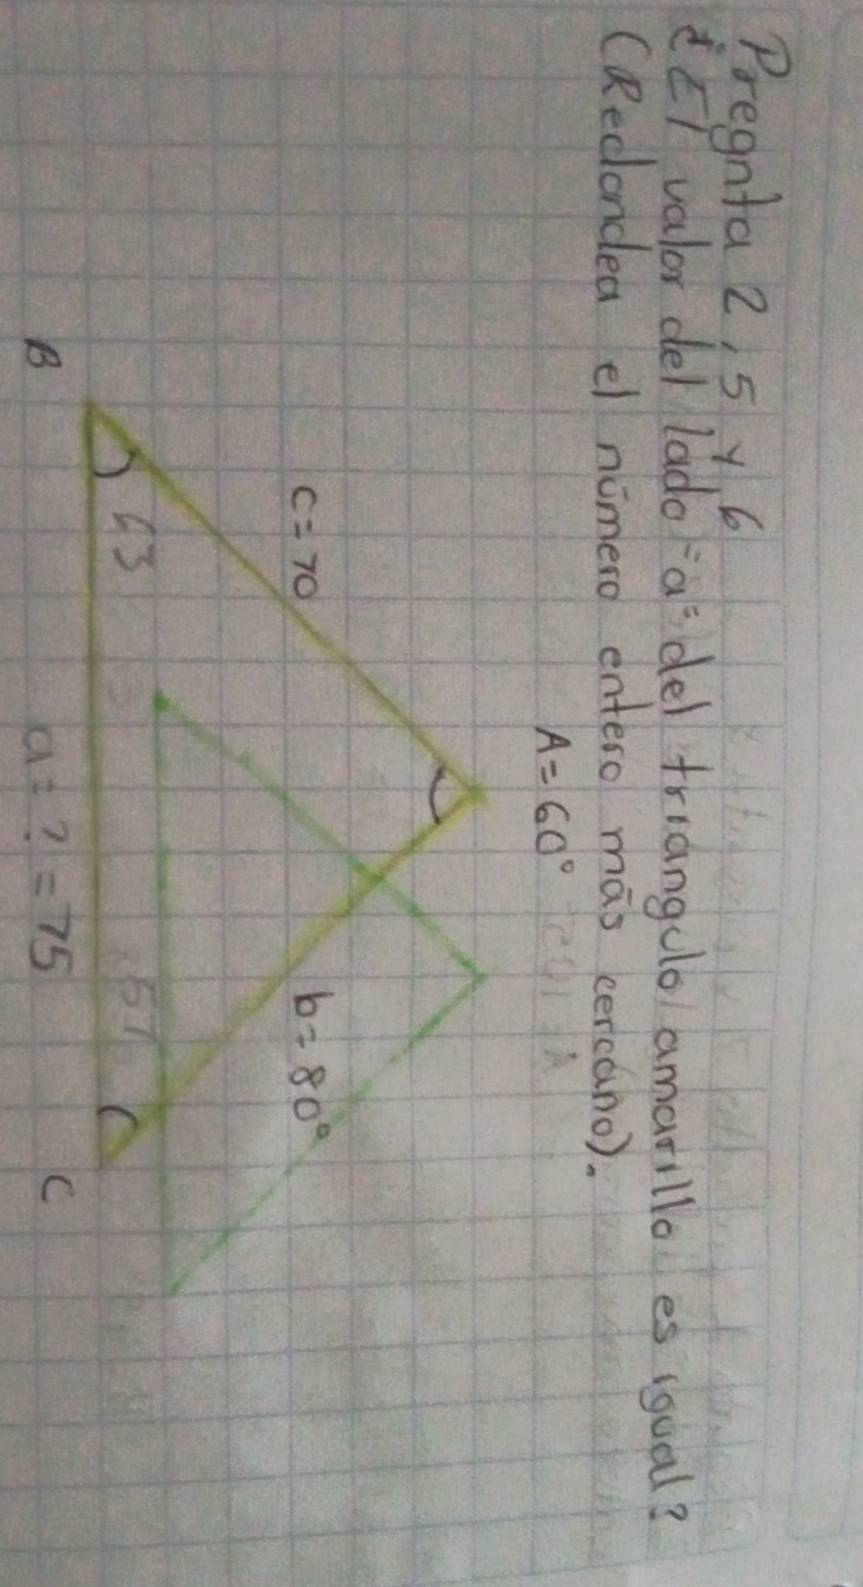 Pregnta 2, 5 y 6
¿El valor del lado "a" del triangulo amarillo es igual?
(Redondea el número entero más cercano).
A = 60°
c = 70
b = 80°
63
57
B
C
a = ? = 75